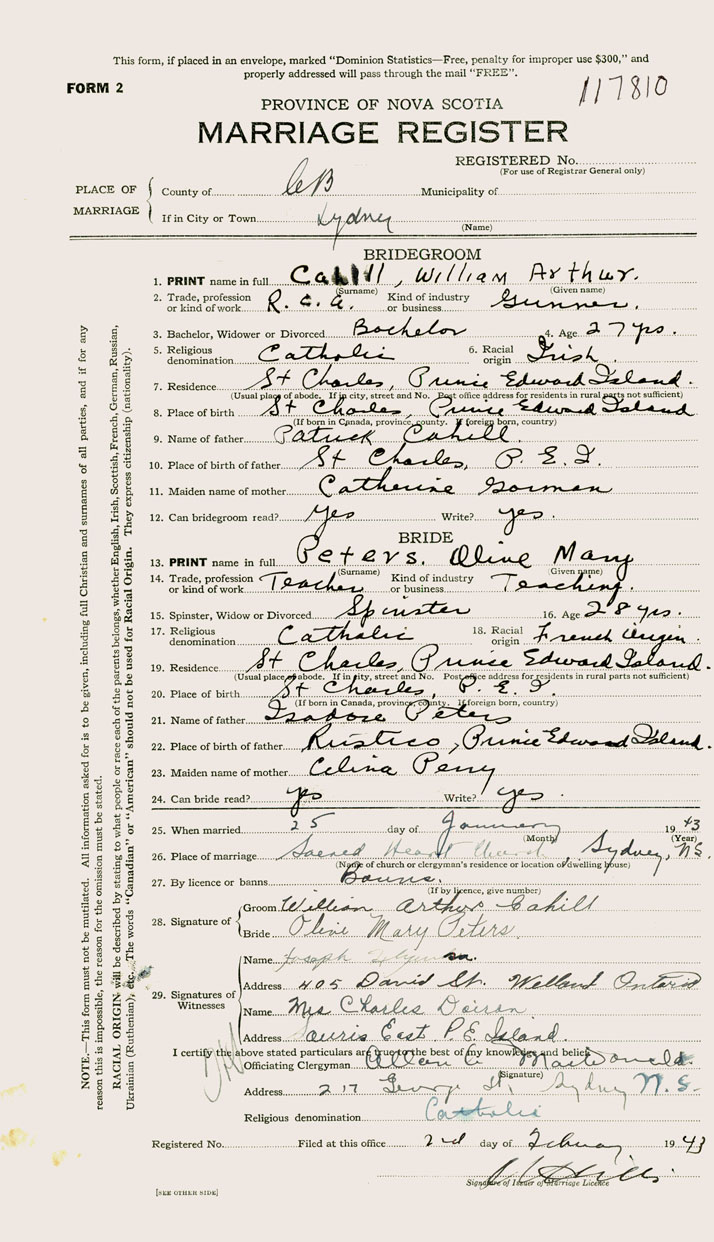 This form, if placed in an envelope, marked "Dominion Statistics—Free, penalty for improper use $300," and
properly addressed will pass through the mail "FREE".
FORM 2
117810
PROVINCE OF NOVA SCOTIA
MARRIAGE REGISTER
REGISTERED No.
(For use of Registrar General only)
PLACE OF MARRIAGE
County of CB Municipality of
If in City or Town Sydney
(Name)
BRIDEGROOM
1. PRINT name in full Cahill, William Arthur.
(Surname) (Given name)
2. Trade, profession or kind of work R.C.A. Kind of industry or business Gunner.
3. Bachelor, Widower or Divorced Bachelor 4. Age 27 yrs.
5. Religious denomination Catholic 6. Racial origin Irish.
7. Residence St Charles, Prince Edward Island.
(Usual place of abode. If in city, street and No. Post office address for residents in rural parts not sufficient)
8. Place of birth St Charles, Prince Edward Island
(If born in Canada, province, county. If foreign born, country)
9. Name of father Patrick Cahill.
10. Place of birth of father St Charles, P.E.I.
11. Maiden name of mother Catherine Gorman
12. Can bridegroom read? Yes Write? yes.
BRIDE
13. PRINT name in full Peters. Olive Mary
(Surname) (Given name)
14. Trade, profession or kind of work Teacher Kind of industry or business Teaching.
15. Spinster, Widow or Divorced Spinster 16. Age 28 yrs.
17. Religious denomination Catholic 18. Racial origin French Origin
19. Residence St Charles, Prince Edward Island.
(Usual place of abode. If in city, street and No. Post office address for residents in rural parts not sufficient)
20. Place of birth St Charles, P.E.I.
(If born in Canada, province, county. If foreign born, country)
21. Name of father Isadore Peters
22. Place of birth of father Rustico, Prince Edward Island.
23. Maiden name of mother Celina Perry
24. Can bride read? yes Write? yes.
25. When married 25 day of January 1943
(Month) (Year)
26. Place of marriage Sacred Heart Church, Sydney, N.S.
(Name of church or clergyman's residence or location of dwelling house)
27. By licence or banns Banns.
(If by licence, give number)
28. Signature of
Groom William Arthur Cahill
Bride Olive Mary Peters.
29. Signatures of Witnesses
Name Joseph
Address 405 David St. Welland Ontario
Name Mrs Charles Doiron
Address Souris East P.E. Island.
I certify the above stated particulars are true to the best of my knowledge and belief.
Officiating Clergyman Allan MacDonald.
(Signature)
Address 217 George St. Sydney N.S.
Religious denomination Catholic
Registered No. Filed at this office 2nd day of February 1943
Signature of Issuer of Marriage Licence
[SEE OTHER SIDE]
NOTE.—This form must not be mutilated. All information asked for is to be given, including full Christian and surnames of all parties, and if for any
reason this is impossible, the reason for the omission must be stated.
RACIAL ORIGIN will be described by stating to what people or race each of the parents belongs, whether English, Irish, Scottish, French, German, Russian,
Ukrainian (Ruthenian), etc. The words "Canadian" or "American" should not be used for Racial Origin. They express citizenship (nationality).